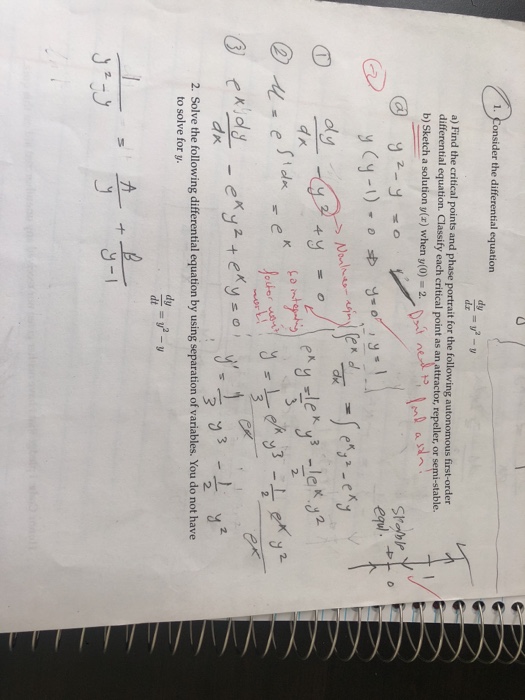 1. Consider the differential equation
dy/dx = y² − y
a) Find the critical points and phase portrait for the following autonomous first-order
differential equation. Classify each critical point as an attractor, repeller, or semi-stable.
b) Sketch a solution y(x) when y(0) = 2.
Don't need to find a soln!
ⓐ y² − y = 0
y(y−1) = 0 ⇒ y = 0, y = 1
1
0
equi.
① dy/dx − y² + y = 0
Nonlinear eqn
∫ eˣ d/dx = ∫ eˣy² − eˣy
② μ = e^∫1dx = eˣ
so integrating
factor won't
work!
eˣy = 1/3 eˣ y³ − 1/2 eˣ y²
③ eˣ dy/dx − eˣy² + eˣy = 0
y = 1/3 eˣ y³ − 1/2 eˣ y²
eˣ eˣ
y = 1/3 y³ − 1/2 y²
2. Solve the following differential equation by using separation of variables. You do not have
to solve for y.
dy/dt = y² − y
1/(y² − y) = A/y + B/(y−1)